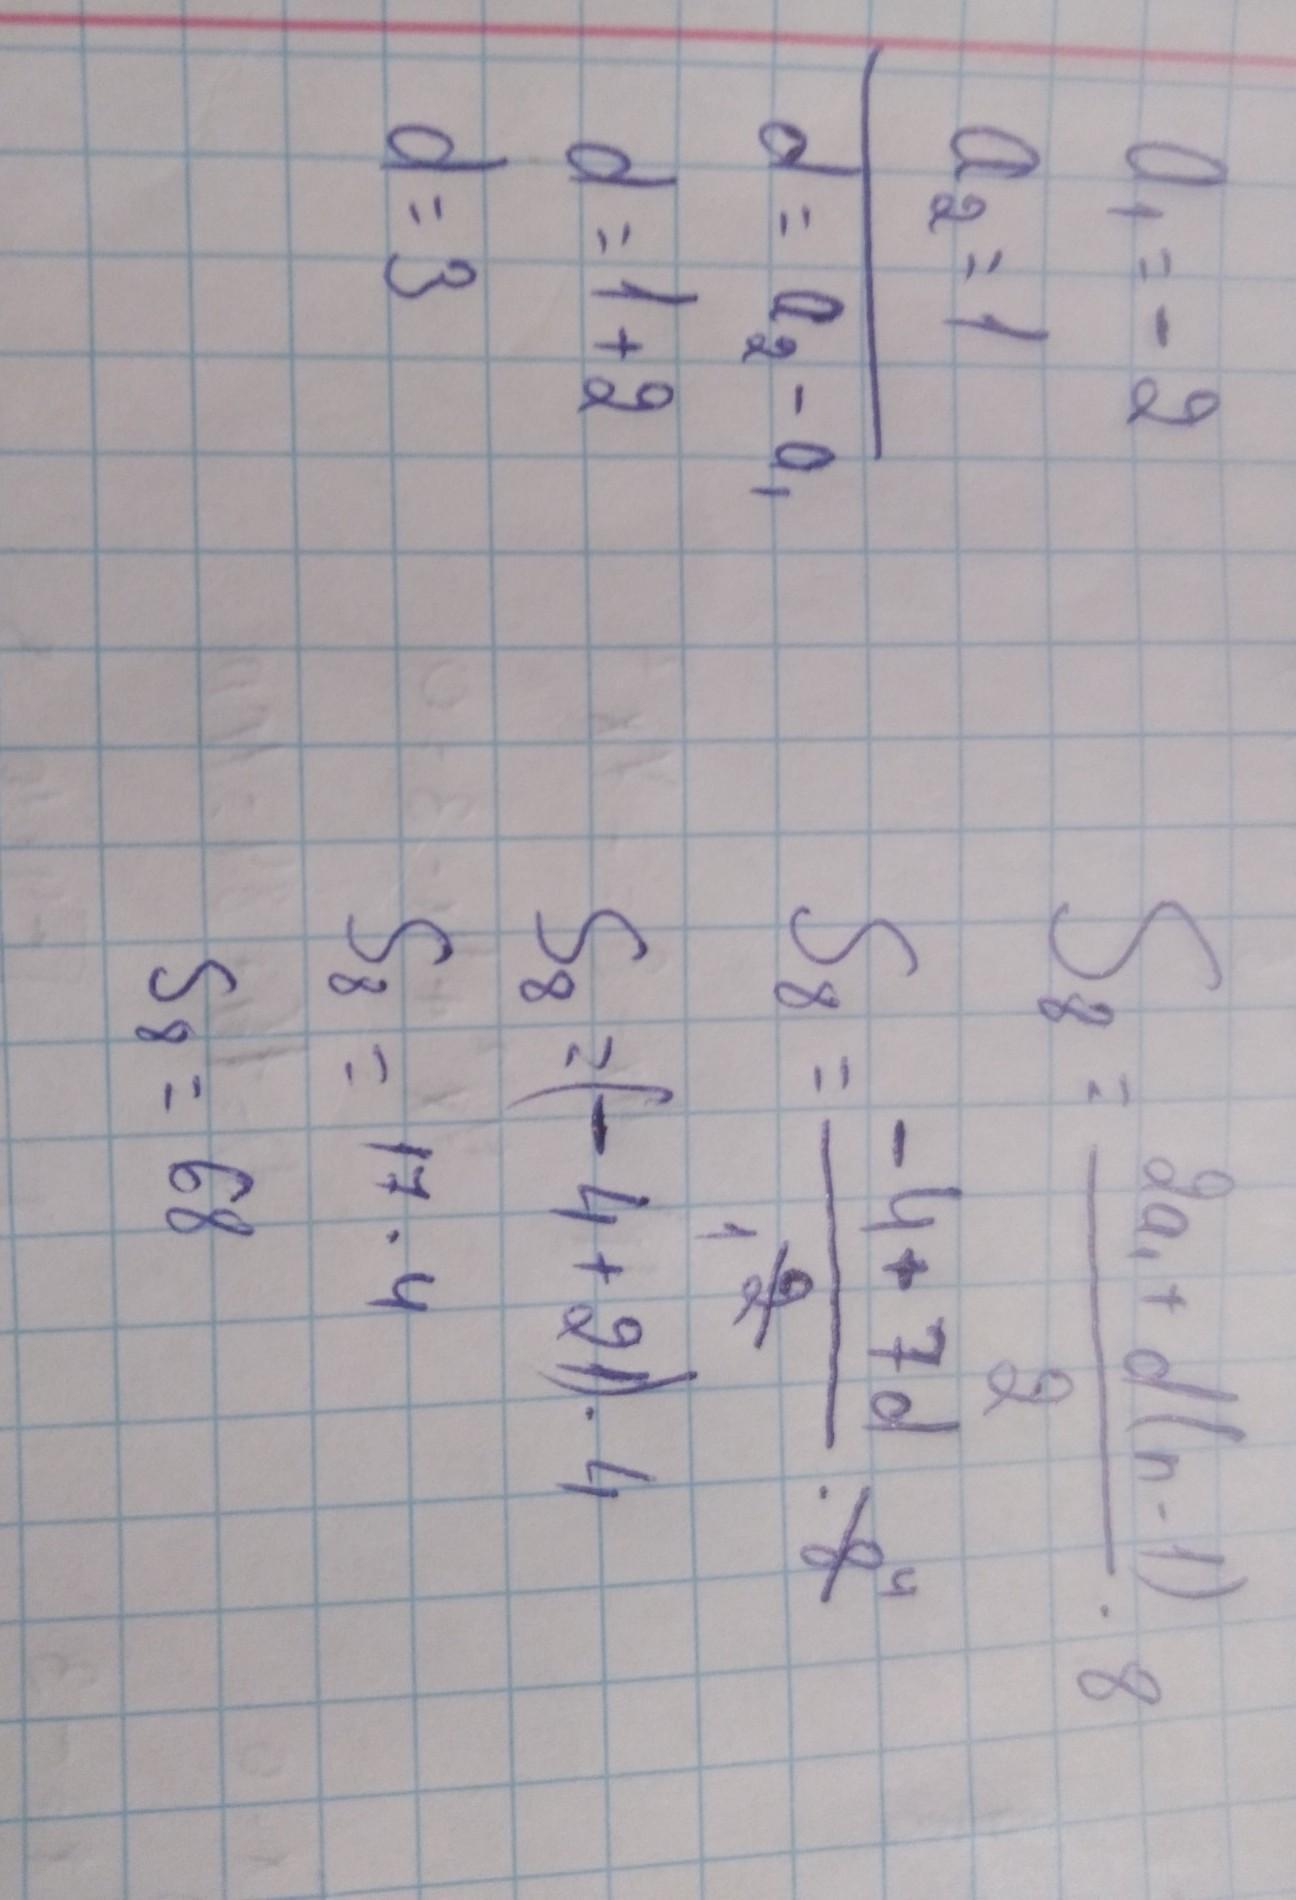 a₁ = - 2
a₂ = 1
d = a₂ - a₁
d = 1 + 2
d = 3
S₈ = (2a₁ + d(n - 1))/2 · 8
S₈ = (- 4 + 7d)/2 · 8
1 4
S₈ = (- 4 + 21) · 4
S₈ = 17 · 4
S₈ = 68